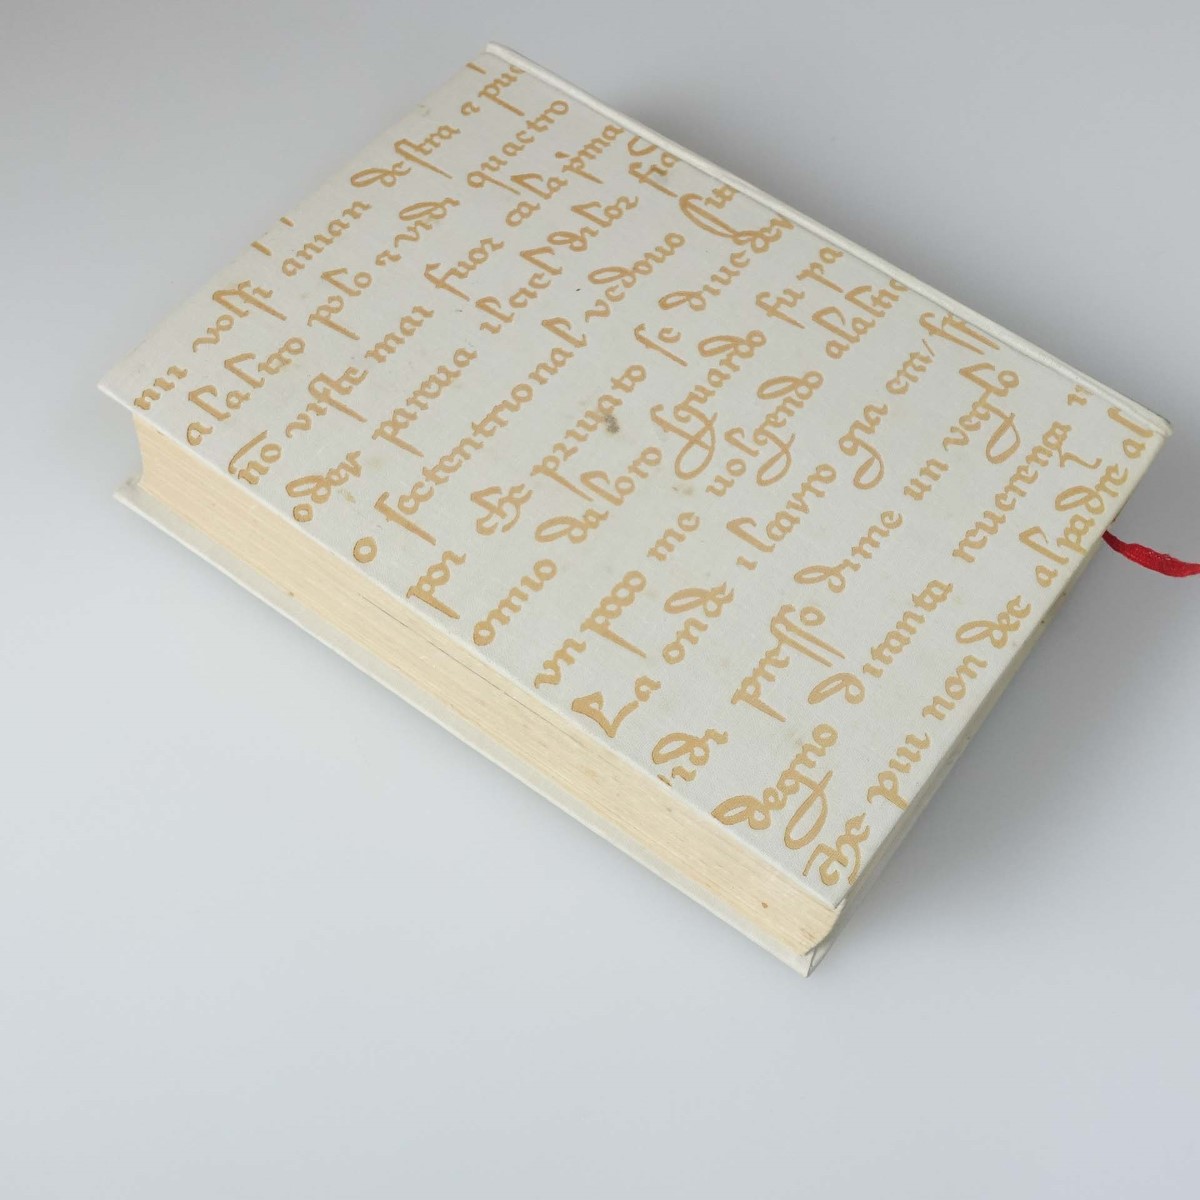 mi volsi aman destra e puo
alaltro polo e vidi quactro
nō viste mai fuor ca la p̍ima
oder pareua ilciel dilor fia
o sectentrional vedouo sit
poi che priuato se diueder
omio daloro sguardo fu pa
vn poco me uolgendo
La onde i lcarro gia era
idi presso dime un veglo
degno ditanta reuerença
che piu non dee alpadre al